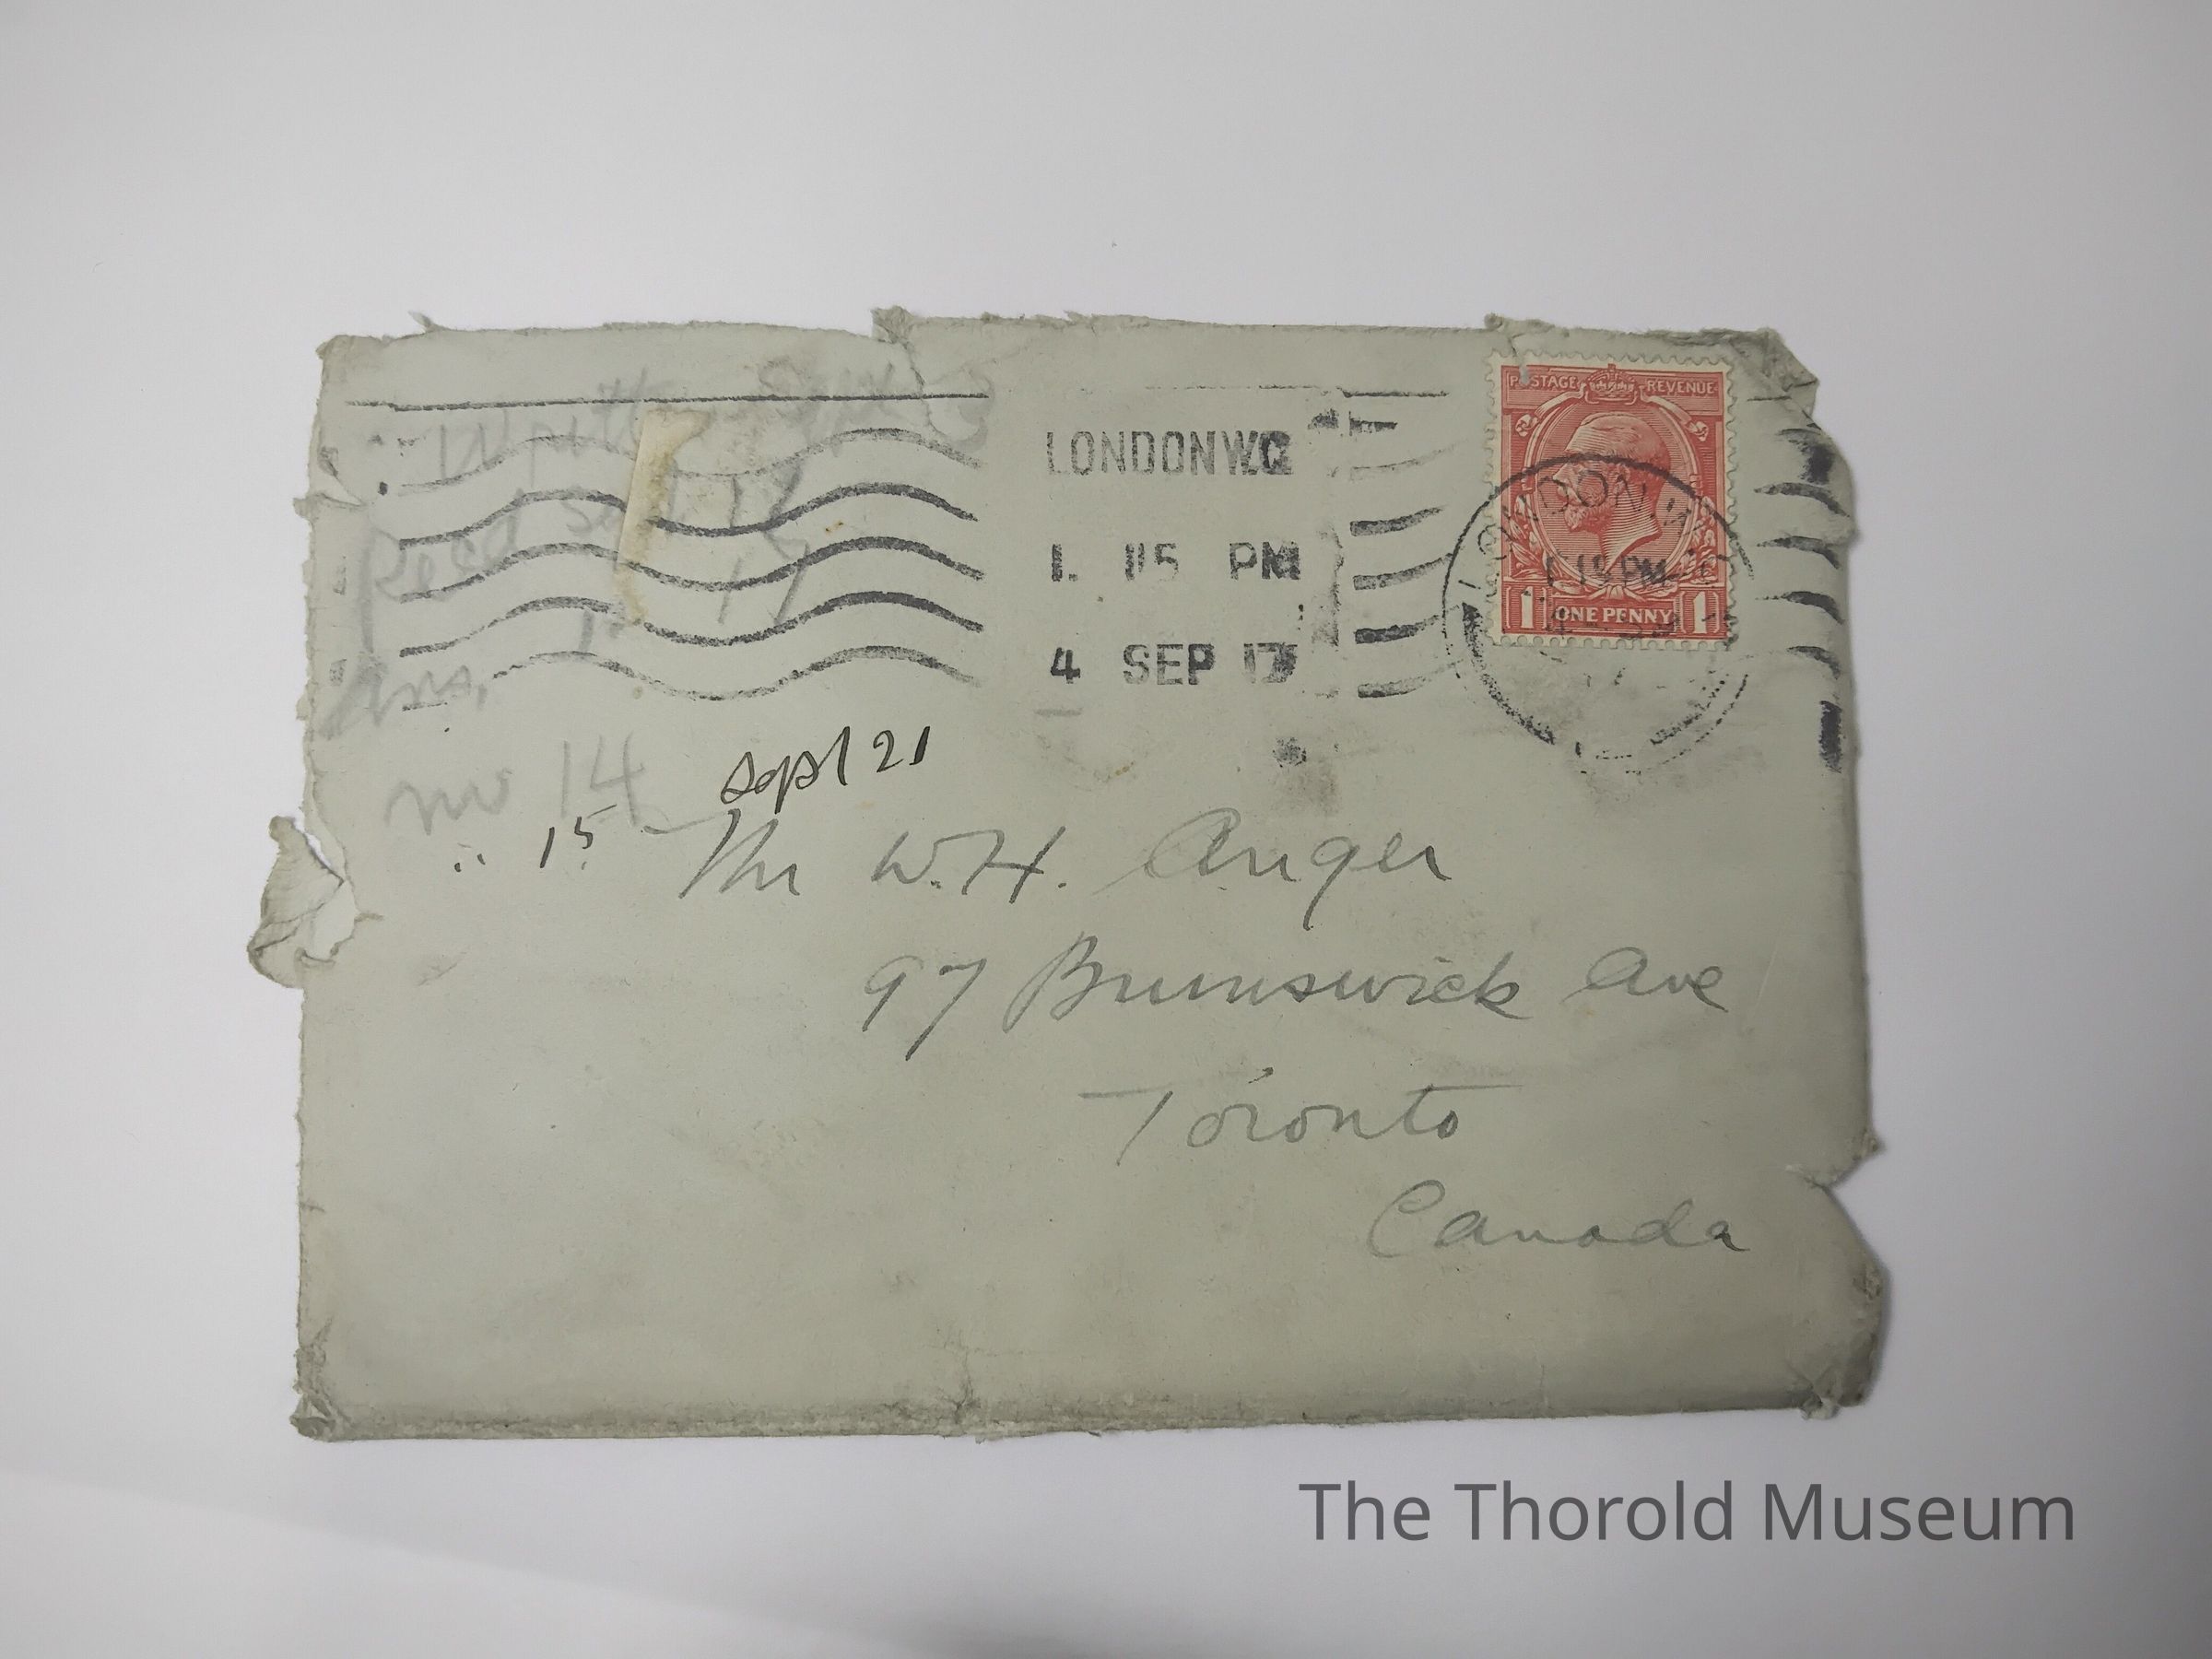 Written Sept 3
LONDON.W.C
Recd Sept 17
1. 15 PM
17
4 SEP 17
Ans.
POSTAGE REVENUE
LONDON.W.C
1 15 PM
1 ONE PENNY 1
no 14
Sept 21
" 15
Mr W.H. Anger
97 Brunswick Ave
Toronto
Canada
The Thorold Museum